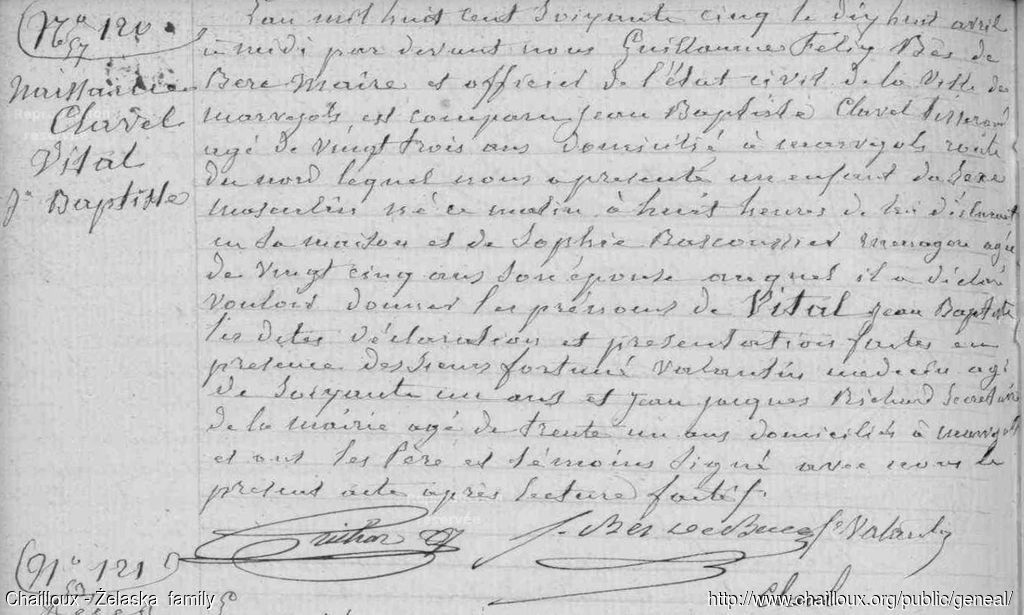 No 120
57
Naissance
Clavel
Vital
Jn Baptiste
L'an mil huit cent soixante cinq le dix huit avril
à midi par devant nous Guillaume Félix Bès de
Berc Maire et officier de l'état civil de la Ville de
marvejols est comparu Jean Baptiste Clavel tisserand
agé de vingt trois ans domicilié à marvejols route
du nord lequel nous a présenté un enfant du sexe
masculin né ce matin à huit heures de lui déclarant
en sa maison et de Sophie menagere agée
de vingt cinq ans son épouse auquel il a déclaré
vouloir donner les prénoms de Vital Jean Baptiste
les dites déclaration et presentation faites en
presence des sieurs fortuné Valantin medecin agé
de soixante un ans et Jean Jacques Richard Secretaire
de la mairie agé de trente un ans domiciliés à marvejols
et ont les Père et témoins signé avec nous le
présent acte après lecture faite
Bès de Berc fé Valantin
Clavel
No 121
57
Chailloux - Żelaska family
http://www.chailloux.org/public/geneal/